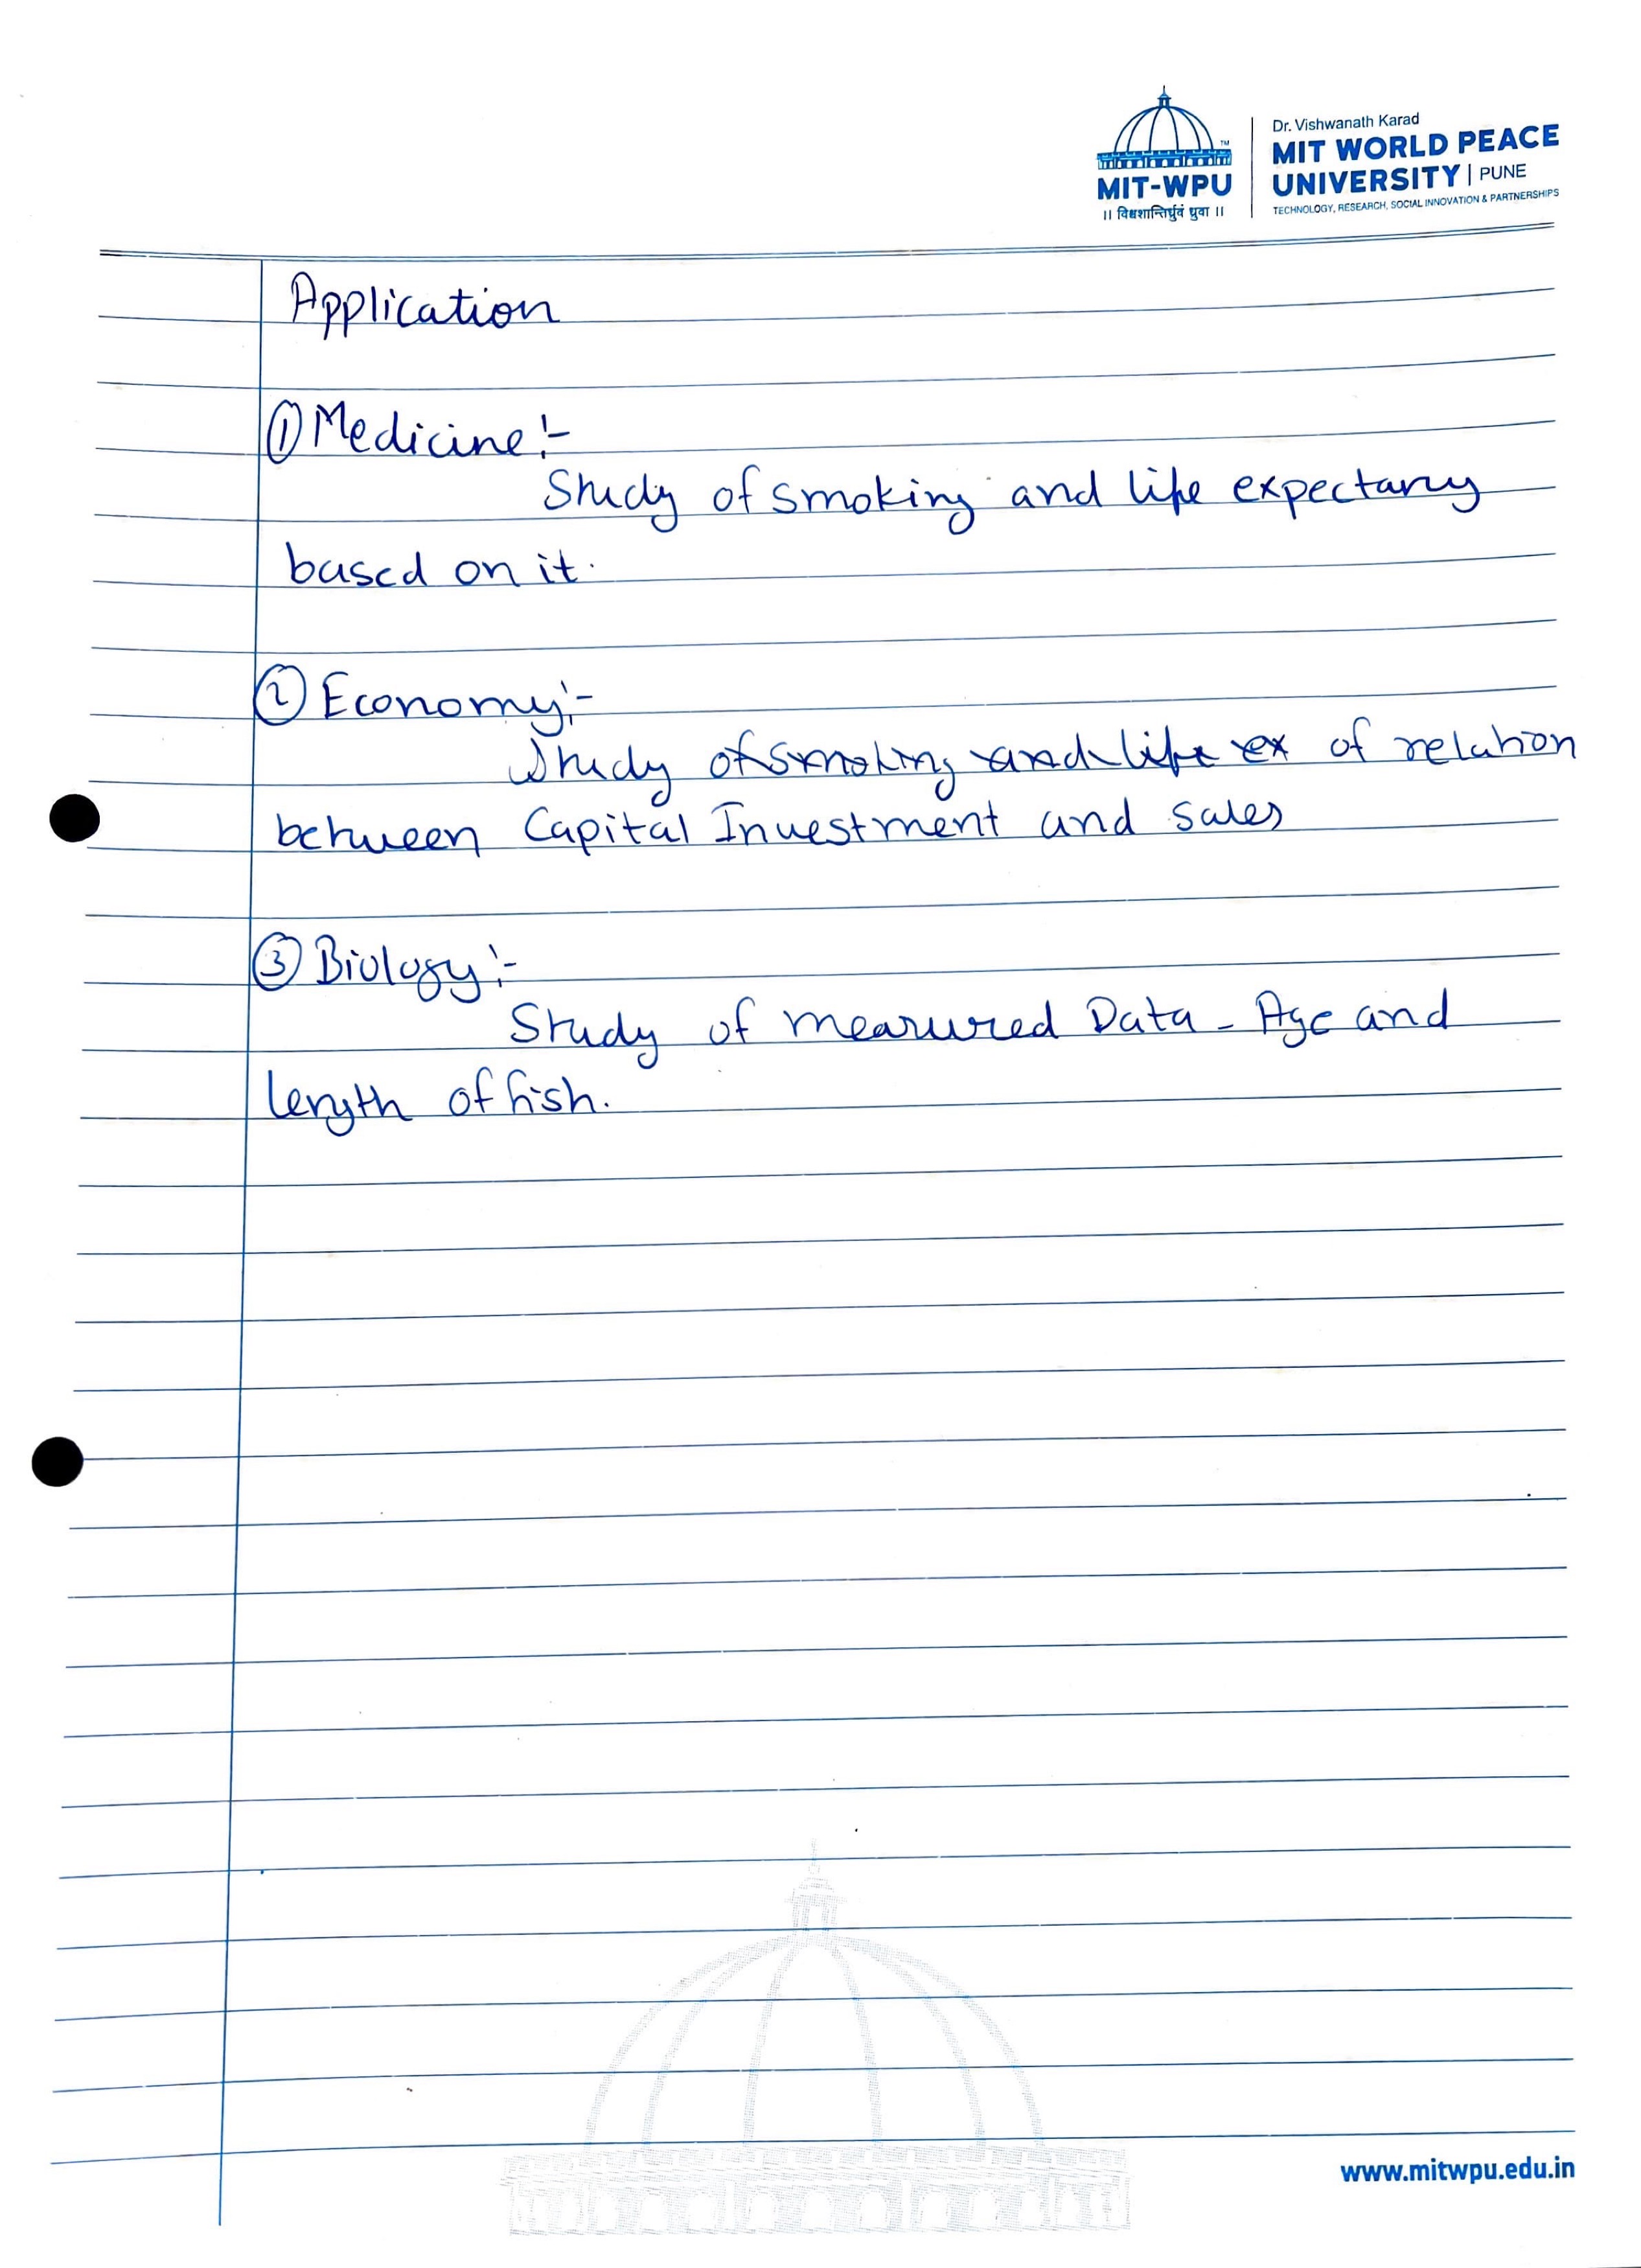 MIT-WPU
॥ विश्वशान्तिर्ध्रुवं ध्रुवा ॥
Dr. Vishwanath Karad
MIT WORLD PEACE
UNIVERSITY | PUNE
TECHNOLOGY, RESEARCH, SOCIAL INNOVATION & PARTNERSHIPS
Application
① Medicine:-
Study of smoking and life expectany
based on it.
② Economy:-
Study of smoking and life ex of relation
between Capital Investment and sales
③ Biology:-
Study of measured Data - Age and
length of fish.
www.mitwpu.edu.in